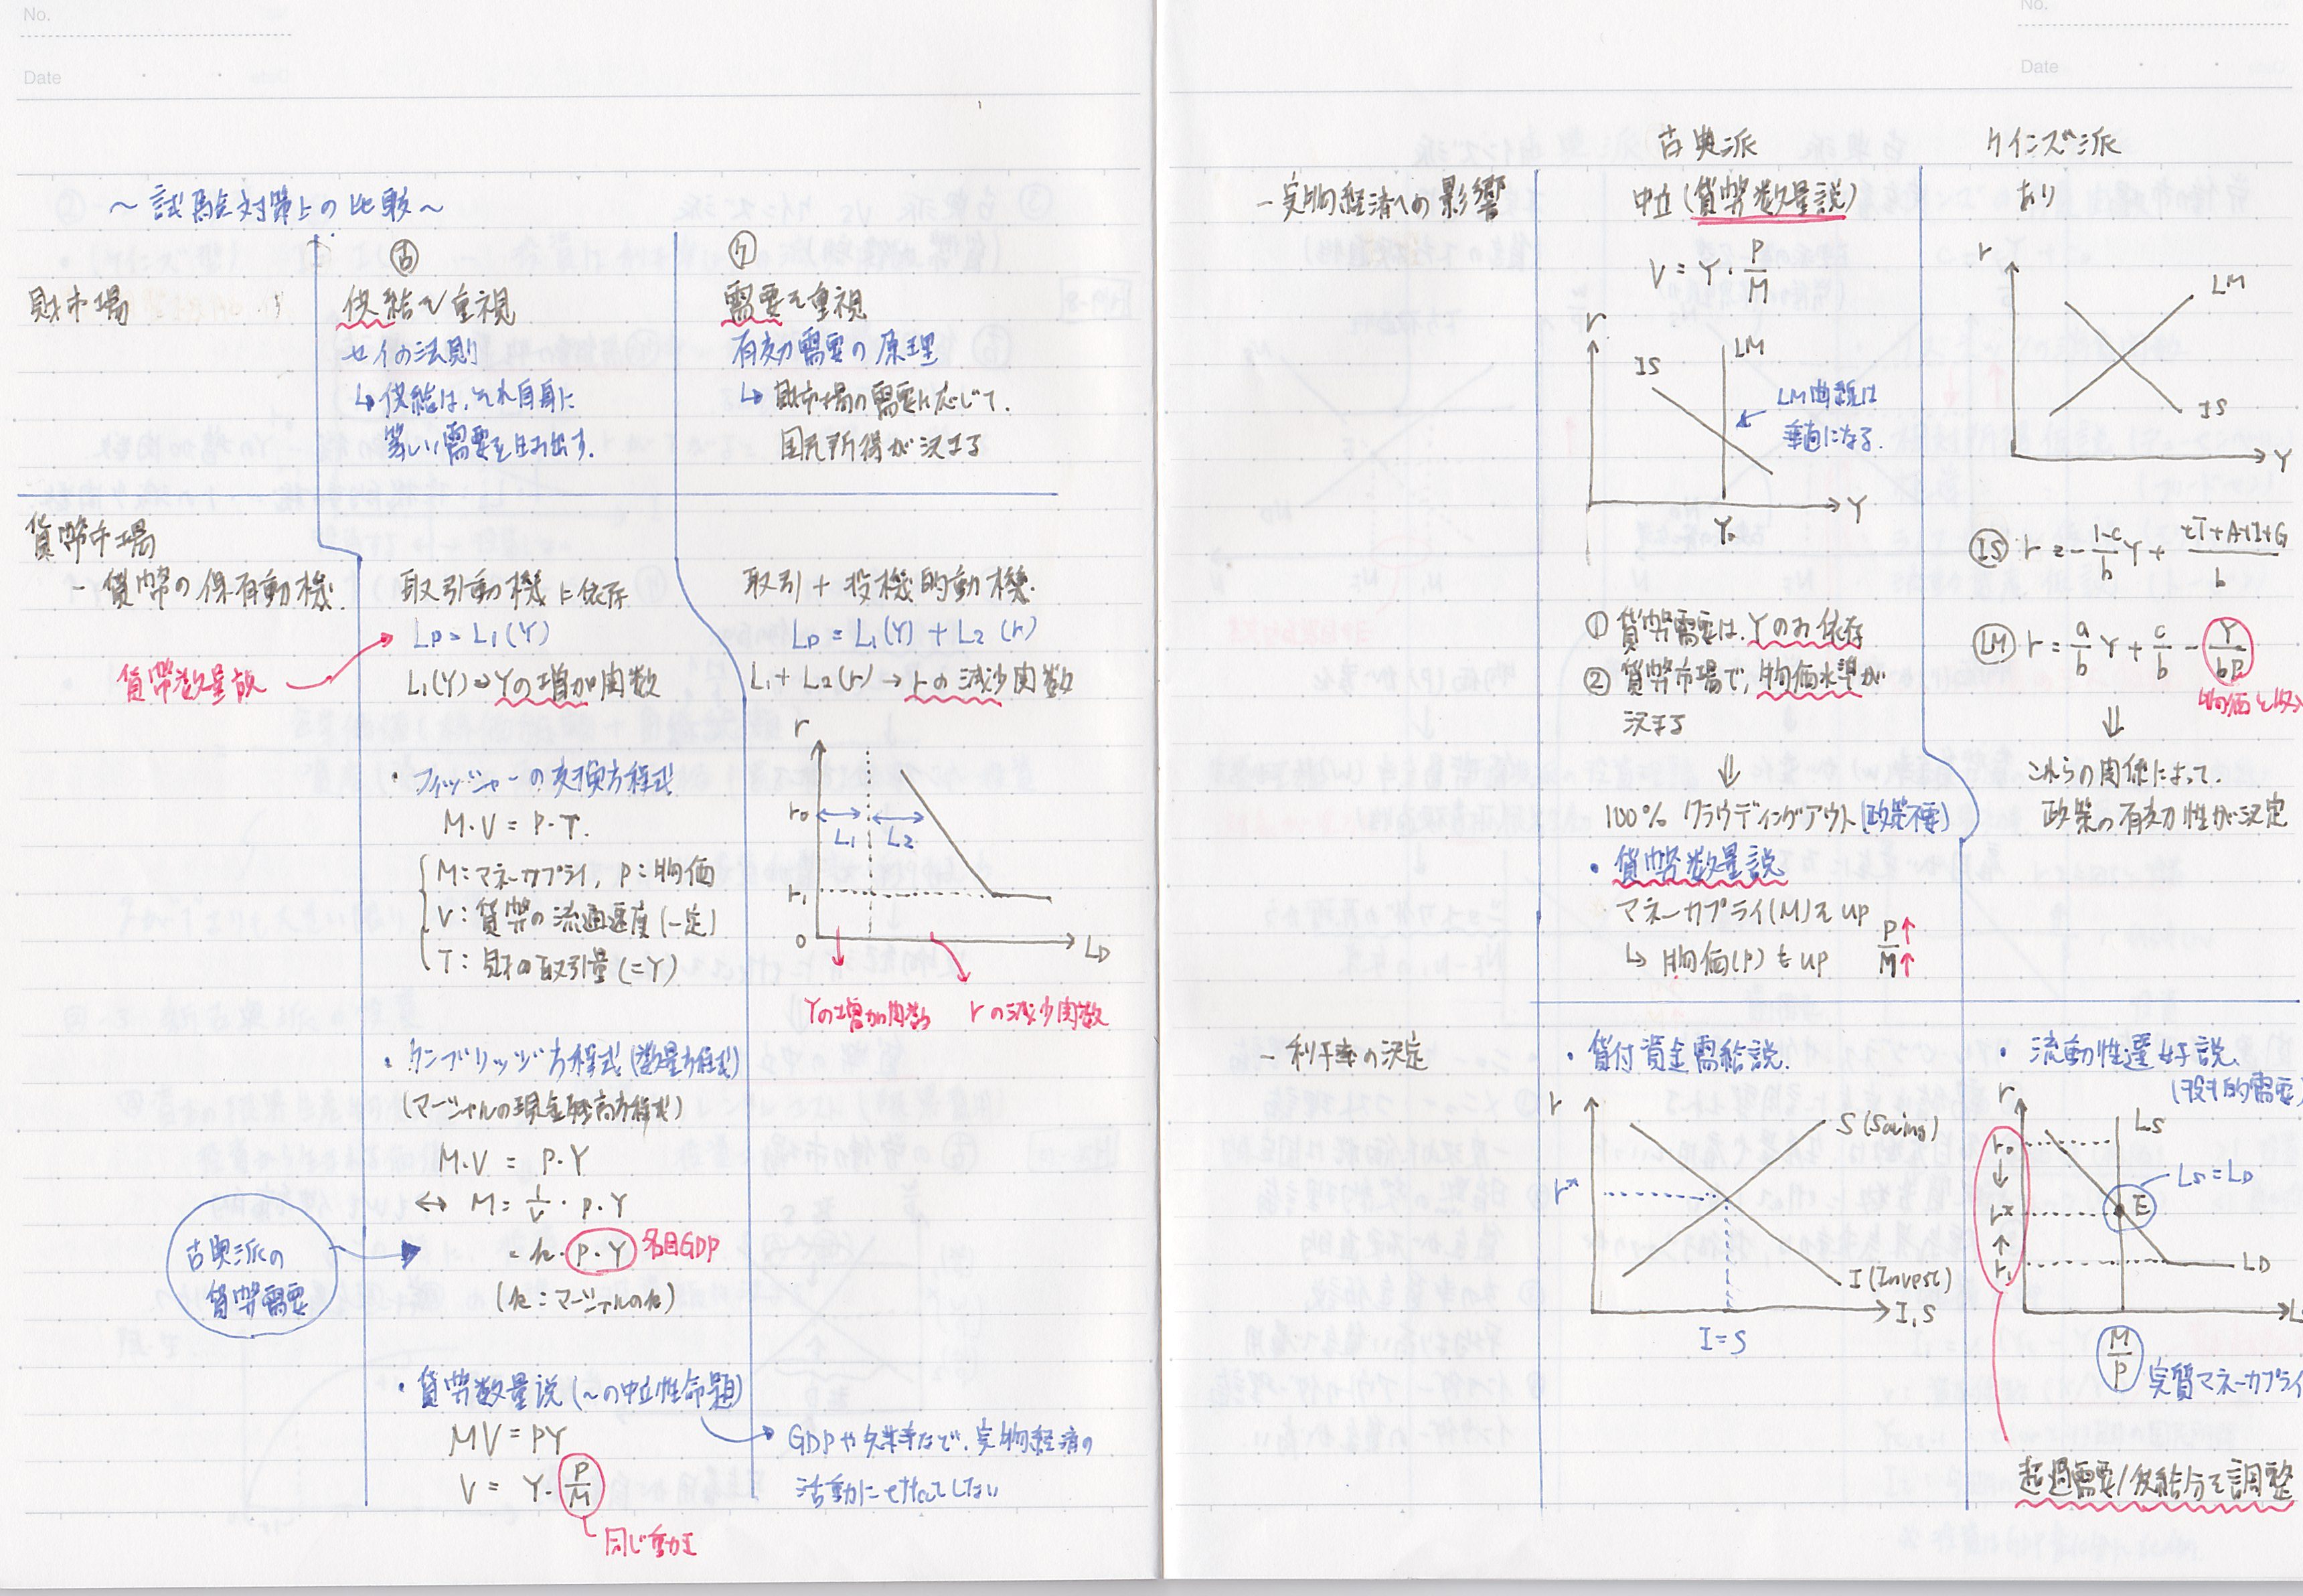 No.
Date
～試験対策上の比較～
古
ケ
財市場
供給を重視
セイの法則
↳ 供給は、それ自身に
等しい需要を生み出す.
需要を重視
有効需要の原理
↳ 財市場の需要に応じて.
国民所得が決まる
貨幣市場
- 貨幣の保有動機
取引動機に依存
LD = L1(Y)
貨幣数量説
L1(Y)⇒Yの増加関数
取引 + 投機的動機.
LD = L1(Y) + L2(r)
L1 + L2(r) → rの減少関数
・フィッシャーの交換方程式
M・V = P・T.
M: マネーサプライ, P: 物価
V: 貨幣の流通速度 (一定)
T: 財の取引量 (=Y)
r
r0
L1
L2
r1
0
LD
Yの増加関数
rの減少関数
・ケンブリッジ方程式 (数量方程式)
(マーシャルの現金残高方程式)
M・V = P・Y
↔ M = 1/V・P・Y
= k・P・Y 名目GDP
(k: マーシャルのk)
古典派の
貨幣需要
・貨幣数量説 (～の中立性命題)
MV = PY
V = Y・P/M
同じ動き
GDPや失業率など、実物経済の
活動に
No.
Date
古典派
ケインズ派
- 実物経済への影響
中立 (貨幣数量説)
V = Y・P/M
あり
r
IS
LM
LM曲線は
垂直になる.
Y
Y0
r
LM
IS
Y
IS r = - 1-c/b Y + cT+A+I+G/b
LM r = a/b Y + c/b - Y/bP
① 貨幣需要は、Yのみ依存
② 貨幣市場で、物価水準が
決まる
⇓
100% クラウディングアウト (政策不要)
⇓
これらの関係によって.
政策の有効性が決定
・貨幣数量説
マネーサプライ(M)を up
↳ 物価(P) も up
P↑
M↑
- 利子率の決定
・貸付資金需給説.
r
S (Saving)
r*
I (Invest)
I, S
I = S
・流動性選好説.
(投機的需要)
r
LS
r0
↓
r*
↑
r1
E
LS = LD
LD
M/P 実質マネーサプライ
超過需要/供給分を調整